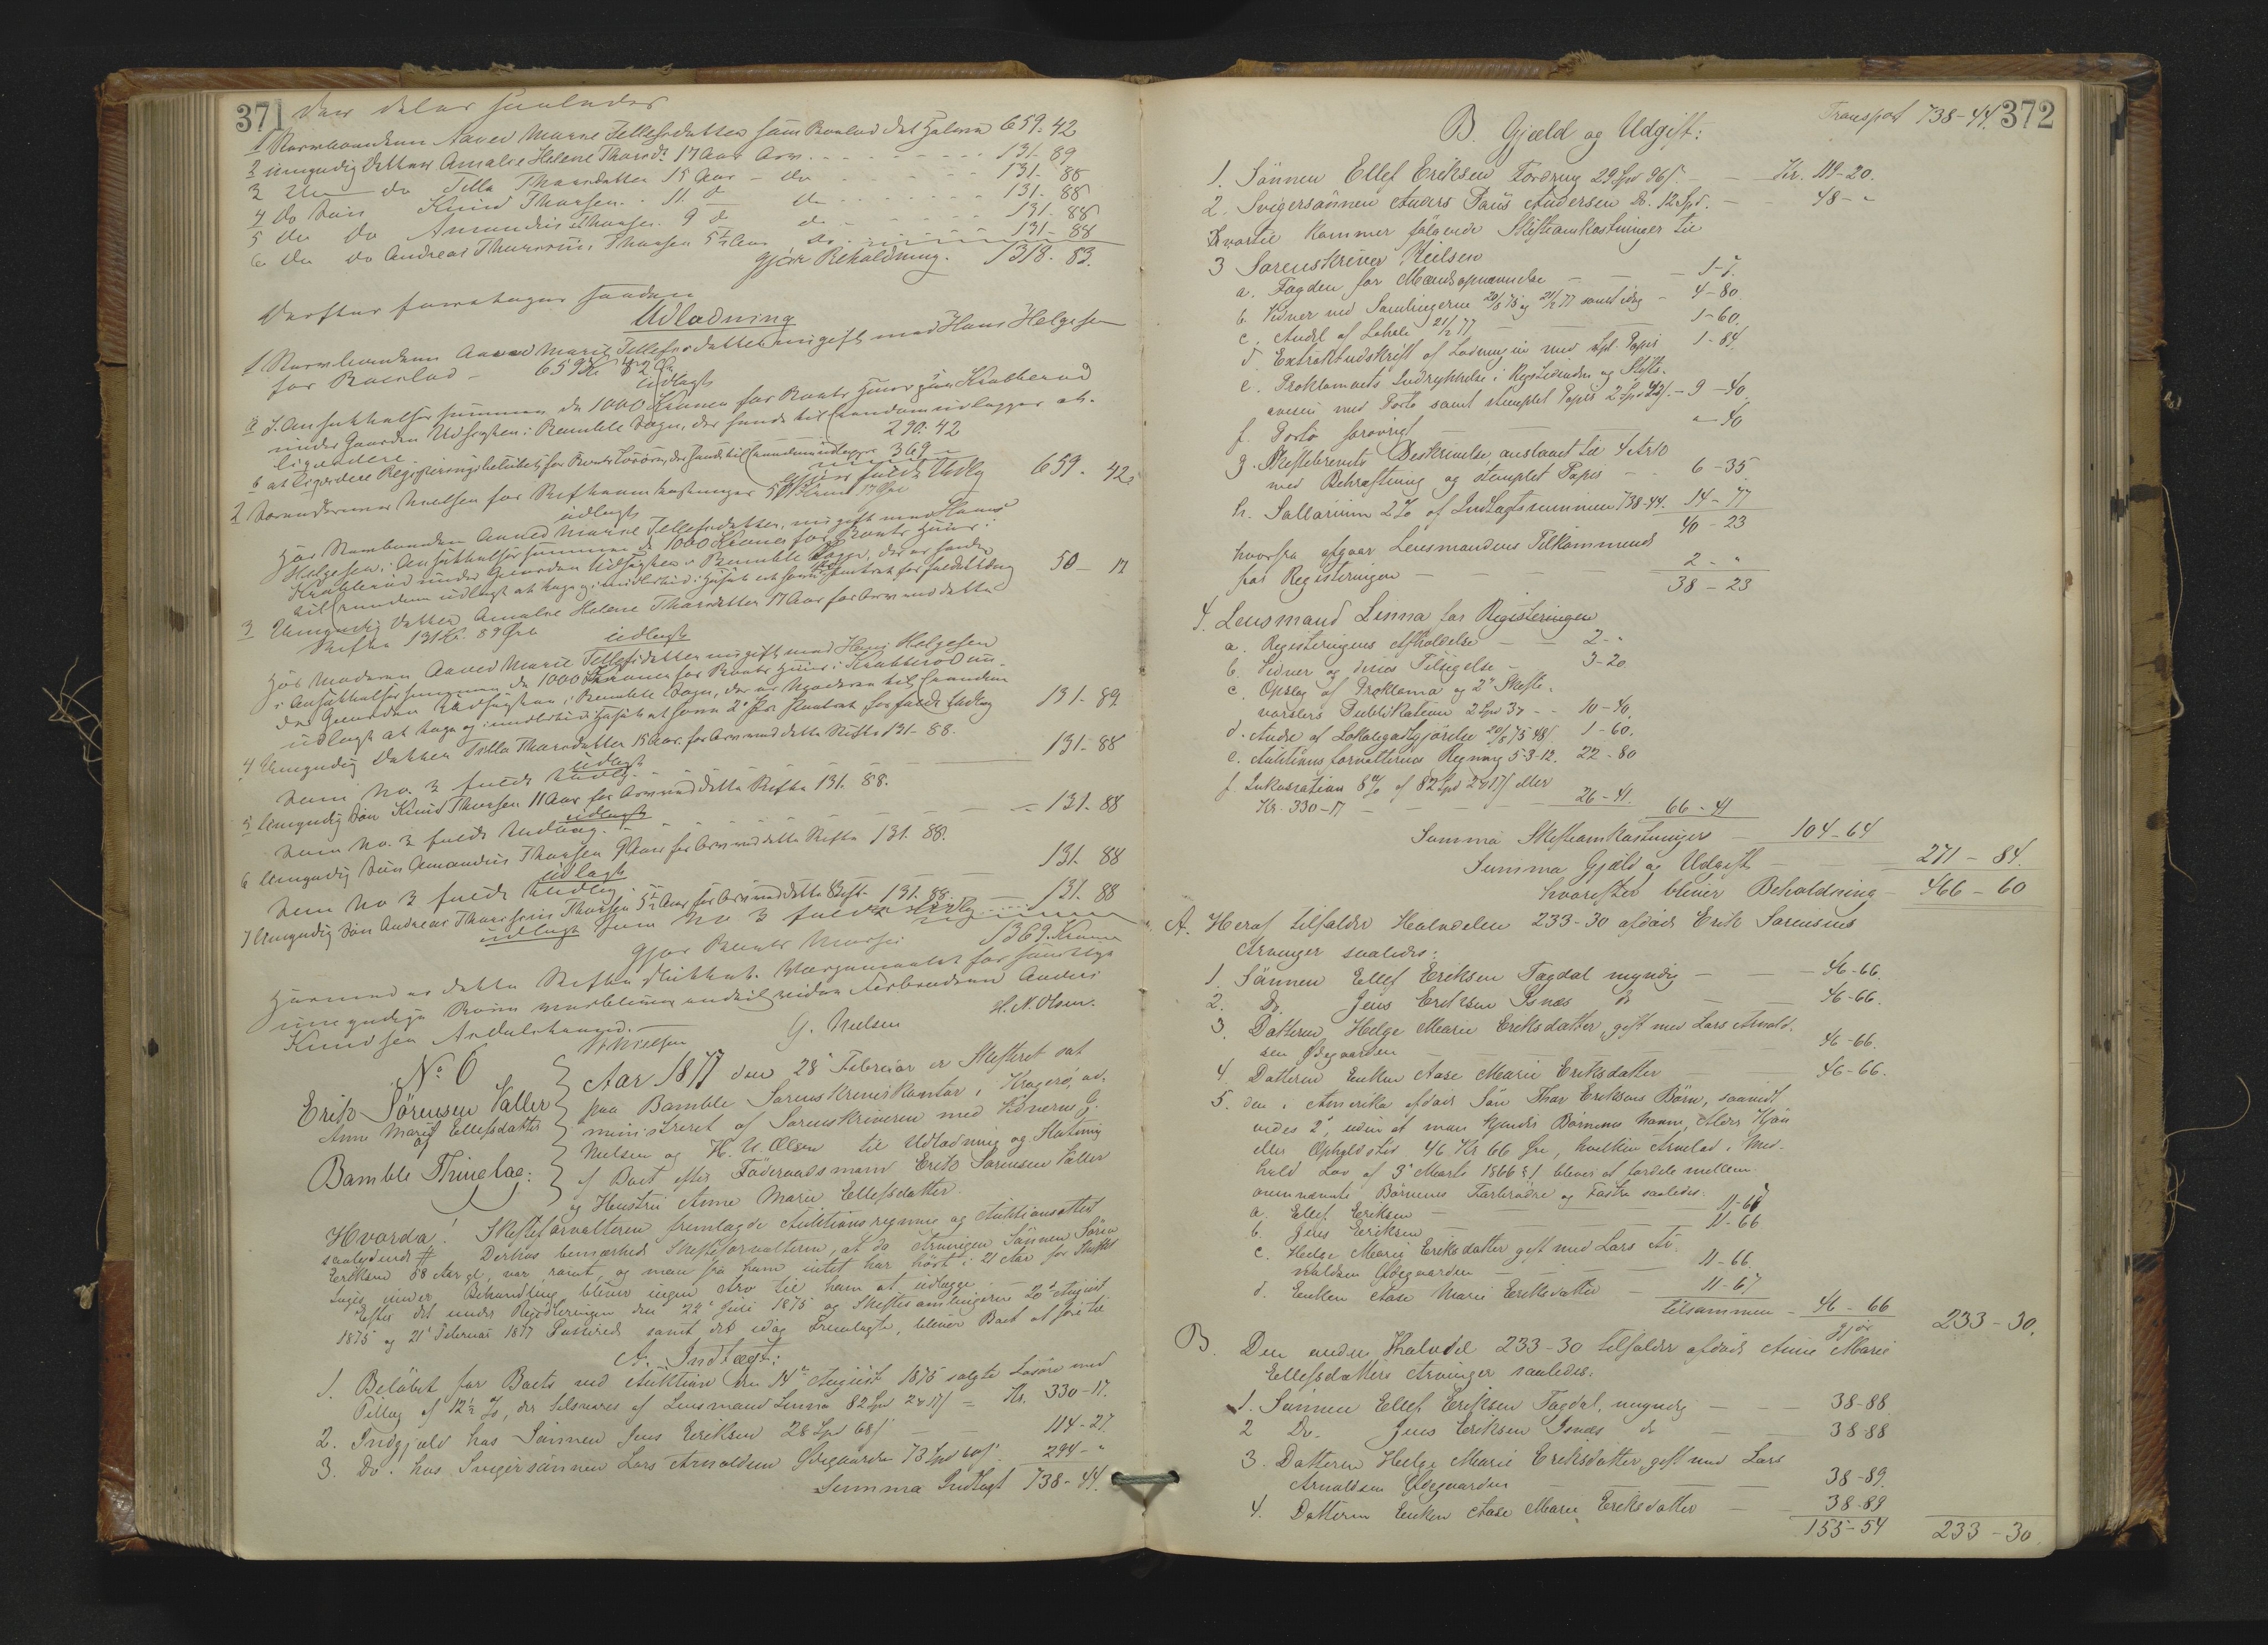 371
som deles saaledes
1 Stervboenken Aaved Marie Tellefsdatter som Boeslod det Halve 659. 42
2 umyndig Datter Amalie Helene Thorsdr 17 Aar Arv 131. 89
3 Um do Tilla Thorsdatter 15 Aar - do 131. 88
4 do Søn Knud Thorsen 11 d do 131. 88
5 do do Amandus Thorsen 9 d do 131. 88
6 do do Andreas Thorsen 5½ Aar do 131- 88
gjør Beholdning. 1318. 83.
Derefter foretoges saadan
Udlodning
1 Stervboenken Aaved Marie Tellefsdatter nu gift med Hans Helgesen
for Boeslod - 659 Kr 42 Ø
udlagt
a J. Ansættelsessummen de 1000 Kroner for Boets Huus paa Krabberød
under Gaarden Udsigten i Bamble Sogn, der sendes til Grundens udlægges at
liqvidere 290. 42
b at liqvidere Registreringsbeløbet for Boets Løsøre, der sendes til Grundens udlægges 369 -
gjør fuldt Udlæg 659. 42
2 Sorenskriver Nielsen for Skifteomkostninger 50 Kroner 17 Øre
udlagt
hos Stervboenken Aaved Marie Tellefsdatter, nu gift med Hans
Helgesen, i Ansættelsessummen de 1000 Kroner for Boets Huus i
Krabberød under Gaarden Udsigten i Bamble Sogn, der er hende
til Grundens udlagt 50 - 17
3 Umyndig Datter Amalie Helene Thorsdatter 17 Aar for Arv med dette
Skifte 131 Kr. 89 Øre
udlagt
hos Moderen Aaved Marie Tellefsdatter nu gift med Hans Helgesen
i Ansættelsessummen de 1000 Kroner for Boets Huus i Krabberød un-
der Gaarden Udsigten i Bamble Sogn, der er Moderen til Grundens
udlagt 131- 89
4 Umyndig Datter Tilla Thorsdatter 15 Aar for Arv med dette Skifte 131- 88.
udlagt
som No. 3 fuldt Udlæg. 131- 88
5 Umyndig Søn Knud Thorsen 11 Aar for Arv med dette Skifte 131. 88.
udlagt
som No. 3 fuldt Udlæg. - 131- 88
6 Umyndig Søn Amandus Thorsen 9 Aar for Arv med dette Skifte 131. 88.
udlagt
som No 3 fuldt Udlæg. 131- 88
7 Umyndig Søn Andreas Thorsen 5½ Aar for Arv med dette Skifte 131. 88.
udlagt som No 3 fuldt Udlæg 131. 88
gjør Boets Masse 1369. Kroner
Hermed er dette Skifte sluttet. Værgemaalet for samtlige
umyndige Børn forbliver indtil videre Farbroderen Anders
Knudsen
Nielsen G. Nielsen H. N. Olsen.
No 6
Erik Sørensen Valler
og
Anne Marie Ellefsdatter
Bamble Thinglag:
Aar 1877 den 28de Februar er Skifteret sat
paa Bamble Sorenskriverkontor i Kragerø, ad-
ministreret af Sorenskriveren med Vidnerne G.
Nielsen og H. N. Olsen til Udlodning og Slutning
af Boet efter Føderaadsmand Erik Sørensen Valler
og Hustru Anne Marie Ellefsdatter.
Hvorda! Skifteforvalteren fremlagde Auktionsregning og Auktionsattest
saalydende # Derhos bemærkede Skifteforvalteren, at da Arvingen Sønnen Søren
Eriksen 58 Aar gl, var rømt, og man fra ham intet har hørt i 21 Aar før Skiftet
toges under Behandling bliver ingen Arv til ham at udlægge. -
Efter det under Registreringen den 22de Juni 1875 og Skiftesamlingerne 20de August
1875 og 21de Februar 1877 Passerede samt det idag Fremlagte, bliver Boet at føre til
A. Indtægt:
1. Beløbet for Boets ved Auktion den 14de August 1875 solgte Løsøre med
Tillæg af 12½ %, der tilsvares af Lensmand Linna 82 Spd 2 # 17 ſ = Kr. 330-17.
2. Indgjæld hos Sønnen Jens Eriksen 28 Spd 68 ſ - 114-27
3. Do. hos Svigersønnen Lars Arnoldsen Ødegaarden 73 Spd 60 ſ. 294-"
Summa Indtægt 738-44.
372
Transport 738-44.
B. Gjæld og Udgift:
1. Sønnen Ellef Eriksen Fordring 29 Spd 96 ſ. - Kr. 119-20.
2. Svigersønnen Anders Paus Andersen Do. 12 Spd. - 48- "
Hvortil kommer følgende Skifteomkostninger til
3 Sorenskriver Nielsen
a. Fogden for Mændsopnævnelse - 1- 7.
b. Vidner ved Samlingerne 20/8 75 og 21/2 77 samt idag - 4-80
c. Andel af Lokale 21/2 77 1-60.
d. Extraktudskrift af Lodningen med stpl. Papir 1-84.
e. Proklamaets Indrykkelse i Rigstidende og Stifts-
avisen med Porto samt stemplet Papir 2 Spd 42 ſ. - 9-40
f. Porto forøvrigt " -40
g. Skiftebrevets Beskrivelse anslaaet til 4 Ark
med Bekræftning og stemplet Papir - 6-35
h. Sallarium 2% af Indtægtssummen 738-44. 14-77
40-23
hvorfra afgaar Lensmandens Tilkommende
for Registeringen 2 - "
38-23
4. Lensmand Linna for Registeringen
a. Registeringens Afholdelse 2- "
b. Vidner og deres Tilsigelse - 3-20
c. Opslag af Proklama og 2de Skifte-
varslers Publikation 2 Spd 3 # - - 10-40.
d. Andel af Lokalegodtgjørelse 20/8 75 48 ſ 1-60.
e. Auktionsforvalterens Regning 5-3-12. 22-80
f. Inkassation 8% af 82 Spd 2 # 17 ſ eller
Kr. 330-17 - 26-41. 66-41
Summa Skifteomkostninger - 104-64
Summa Gjæld og Udgift 271-84.
hvorefter bliver Beholdning - 466-60
A. Heraf tilfalder Halvdelen 233-30 afdøde Erik Sørensens
Arvinger saaledes:
1. Sønnen Ellef Eriksen Fagdal myndig - 46-66.
2. Do. Jens Eriksen Isnæs do 46-66.
3. Datteren Helge Marie Eriksdatter, gift med Lars Arnold-
sen Ødegaarden 46-66.
4. Datteren Enken Aase Marie Eriksdatter 46-66.
5. den i Amerika afdøde Søn Thor Eriksens Børn, saavidt
vides 2de, uden at man kjender Børnenes Navne, Alder Kjøn
eller Opholdssted 46 Kr 66 Øre, hvilken Arvelod i Med-
hold Lov af 3de Marts 1866 § 1 bliver at fordele mellem
ovennævnte Børnenes Farbrødre og Faster saaledes:
a. Ellef Eriksen 11-67
b. Jens Eriksen 11-66
c. Helge Marie Eriksdatter gift med Lars Ar-
noldsen Ødegaarden 11-66.
d. Enken Aase Marie Eriksdatter 11-67
tilsammen - 46-66
gjør 233-30.
B. Den anden Halvdel 233-30 tilfalder afdøde Anne Marie
Ellefsdatters Arvinger saaledes:
1. Sønnen Ellef Eriksen Fagdal, myndig - 38-88
2 Do. Jens Eriksen Isnæs do 38-88
3. Datteren Helge Marie Eriksdatter, gift med Lars
Arnoldsen Ødegaarden 38-89.
4. Datteren Enken Aase Marie Eriksdatter 38-89
155-54 233-30.